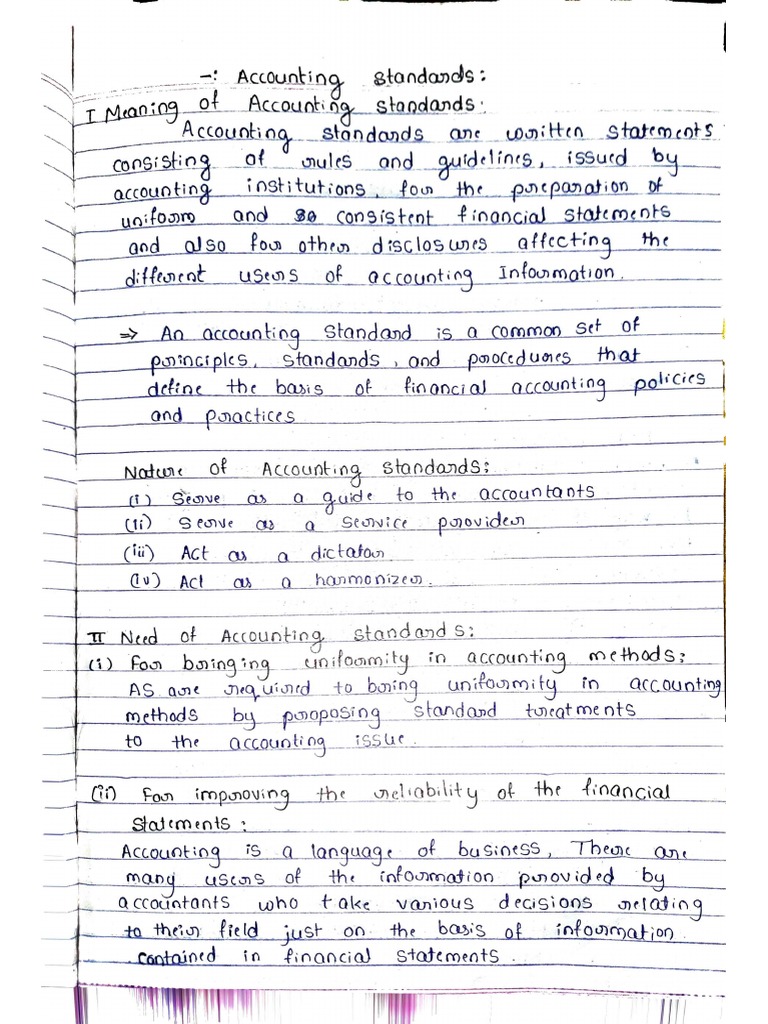 -: Accounting Standards:
I Meaning of Accounting Standards:
Accounting standards are written statements
consisting of rules and guidelines, issued by
accounting institutions, for the preparation of
uniform and consistent financial statements
and also for other disclosures affecting the
different users of accounting Information.
⇒ An accounting standard is a common set of
principles, standards, and procedures that
define the basis of financial accounting policies
and practices
Nature of Accounting Standards:
(i) Serve as a guide to the accountants
(ii) Serve as a service provider
(iii) Act as a dictator.
(iv) Act as a harmonizer.
II Need of Accounting Standards:
(i) For bringing uniformity in accounting methods:
AS are required to bring uniformity in accounting
methods by proposing standard treatments
to the accounting issue.
(ii) For improving the reliability of the financial
Statements:
Accounting is a language of business, There are
many users of the information provided by
accountants who take various decisions relating
to their field just on the basis of information
contained in financial statements.